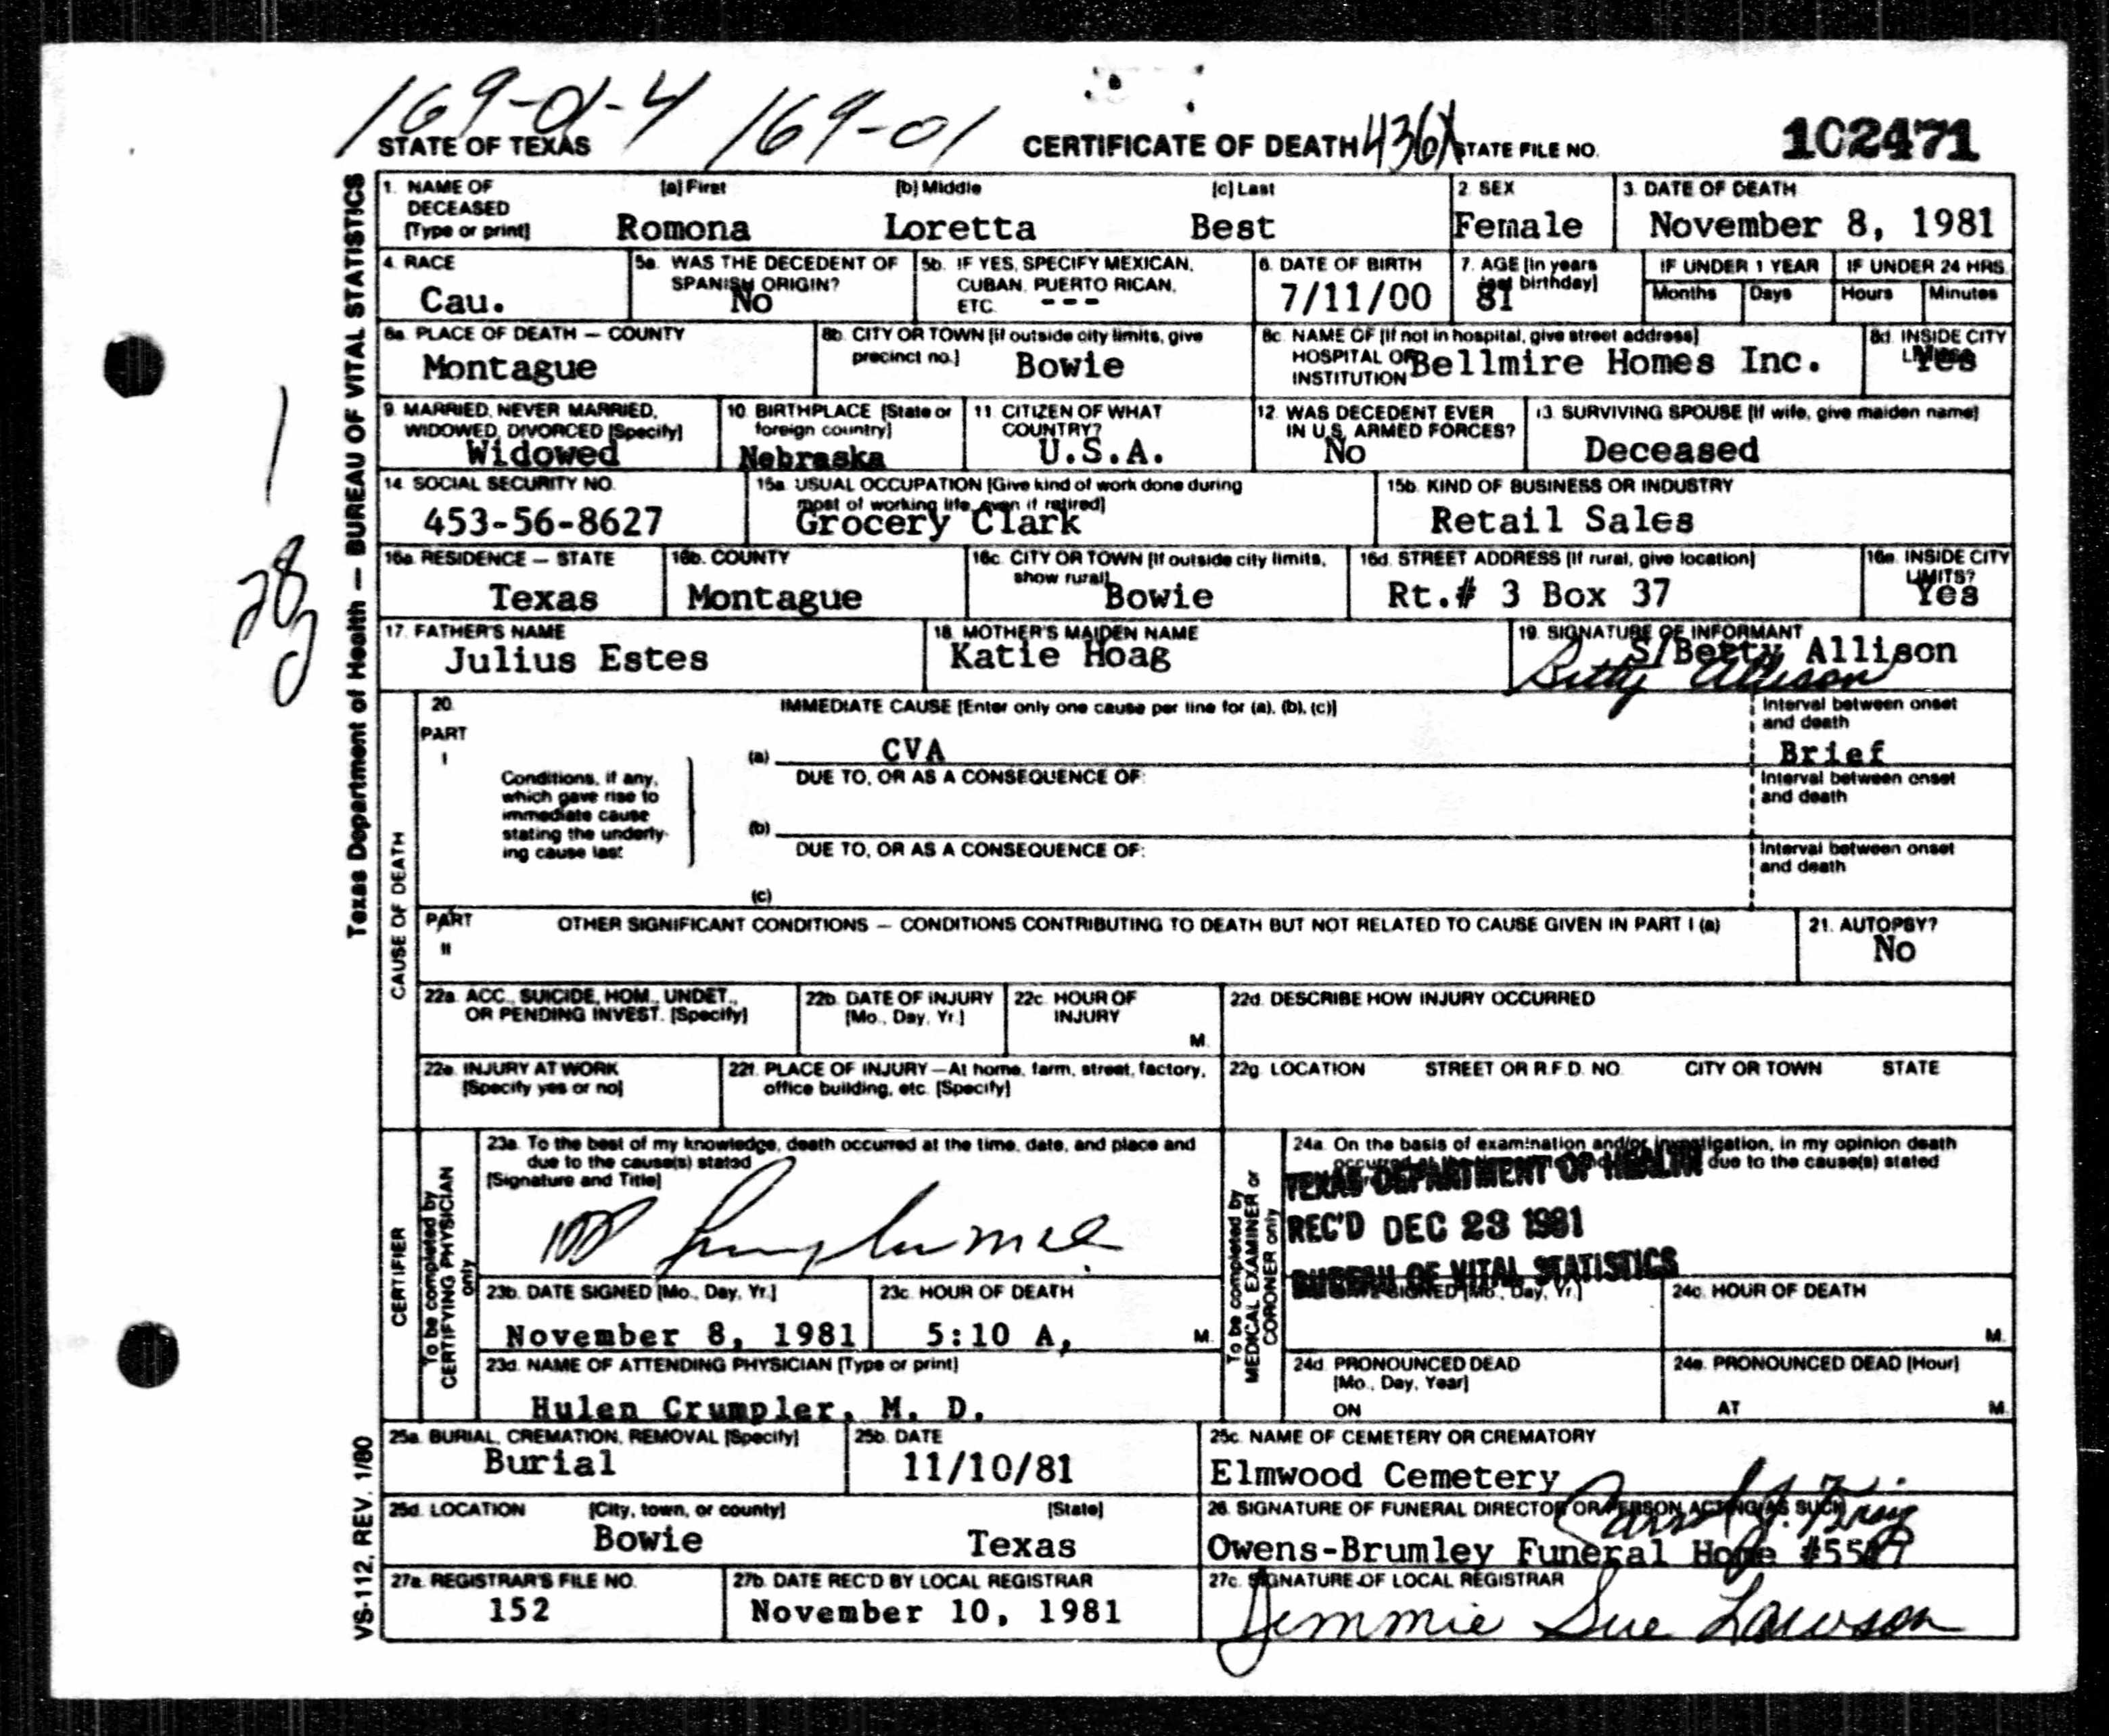 169-01-4 169-01
STATE OF TEXAS CERTIFICATE OF DEATH 436X STATE FILE NO. 102471
Texas Department of Health — BUREAU OF VITAL STATISTICS
1. NAME OF DECEASED [Type or print] (a) First (b) Middle (c) Last 2. SEX 3. DATE OF DEATH
Romona Loretta Best Female November 8, 1981
4. RACE 5a. WAS THE DECEDENT OF SPANISH ORIGIN? 5b. IF YES, SPECIFY MEXICAN, CUBAN, PUERTO RICAN, ETC. 6. DATE OF BIRTH 7. AGE [in years last birthday] IF UNDER 1 YEAR IF UNDER 24 HRS.
Months Days Hours Minutes
Cau. No --- 7/11/00 81
8a. PLACE OF DEATH — COUNTY 8b. CITY OR TOWN [if outside city limits, give precinct no.] 8c. NAME OF [If not in hospital, give street address] HOSPITAL OR INSTITUTION 8d. INSIDE CITY
Montague Bowie Bellmire Homes Inc. Yes
9. MARRIED, NEVER MARRIED, WIDOWED, DIVORCED [Specify] 10. BIRTHPLACE [State or foreign country] 11. CITIZEN OF WHAT COUNTRY? 12. WAS DECEDENT EVER IN U.S. ARMED FORCES? 13. SURVIVING SPOUSE [If wife, give maiden name]
Widowed Nebraska U.S.A. No Deceased
14. SOCIAL SECURITY NO. 15a. USUAL OCCUPATION [Give kind of work done during most of working life, even if retired] 15b. KIND OF BUSINESS OR INDUSTRY
453-56-8627 Grocery Clark Retail Sales
16a. RESIDENCE — STATE 16b. COUNTY 16c. CITY OR TOWN [If outside city limits, show rural] 16d. STREET ADDRESS [If rural, give location] 16e. INSIDE CITY LIMITS?
Texas Montague Bowie Rt.# 3 Box 37 Yes
17. FATHER'S NAME 18. MOTHER'S MAIDEN NAME 19. SIGNATURE OF INFORMANT
Julius Estes Katie Hoag S/Betty Allison
Betty Allison
CAUSE OF DEATH
20. IMMEDIATE CAUSE [Enter only one cause per line for (a), (b), (c)] Interval between onset and death
PART I
(a) CVA Brief
Conditions, if any, which gave rise to immediate cause stating the underlying cause last
DUE TO, OR AS A CONSEQUENCE OF: Interval between onset and death
(b)
DUE TO, OR AS A CONSEQUENCE OF: Interval between onset and death
(c)
PART II OTHER SIGNIFICANT CONDITIONS — CONDITIONS CONTRIBUTING TO DEATH BUT NOT RELATED TO CAUSE GIVEN IN PART I (a) 21. AUTOPSY?
No
22a. ACC., SUICIDE, HOM., UNDET., OR PENDING INVEST. [Specify] 22b. DATE OF INJURY [Mo., Day, Yr.] 22c. HOUR OF INJURY M. 22d. DESCRIBE HOW INJURY OCCURRED
22e. INJURY AT WORK [Specify yes or no] 22f. PLACE OF INJURY — At home, farm, street, factory, office building, etc. [Specify] 22g. LOCATION STREET OR R.F.D. NO. CITY OR TOWN STATE
CERTIFIER
To be completed by CERTIFYING PHYSICIAN only
23a. To the best of my knowledge, death occurred at the time, date, and place and due to the cause(s) stated
[Signature and Title]
23b. DATE SIGNED [Mo., Day, Yr.] 23c. HOUR OF DEATH
November 8, 1981 5:10 A, M.
23d. NAME OF ATTENDING PHYSICIAN [Type or print]
Hulen Crumpler, M. D.
To be completed by MEDICAL EXAMINER or CORONER only
24a. On the basis of examination and/or investigation, in my opinion death due to the cause(s) stated
TEXAS DEPARTMENT OF HEALTH
REC'D DEC 23 1981
BUREAU OF VITAL STATISTICS
SIGNED [Mo., Day, Yr.] 24c. HOUR OF DEATH M.
24d. PRONOUNCED DEAD [Mo., Day, Year] ON 24e. PRONOUNCED DEAD [Hour] AT M.
25a. BURIAL, CREMATION, REMOVAL [Specify] 25b. DATE 25c. NAME OF CEMETERY OR CREMATORY
Burial 11/10/81 Elmwood Cemetery
25d. LOCATION [City, town, or county] [State] 26. SIGNATURE OF FUNERAL DIRECTOR OR PERSON ACTING AS SUCH
Bowie Texas Owens-Brumley Funeral Home
27a. REGISTRAR'S FILE NO. 27b. DATE REC'D BY LOCAL REGISTRAR 27c. SIGNATURE OF LOCAL REGISTRAR
152 November 10, 1981 Jimmie Sue Lawson
VS-112, REV. 1/80